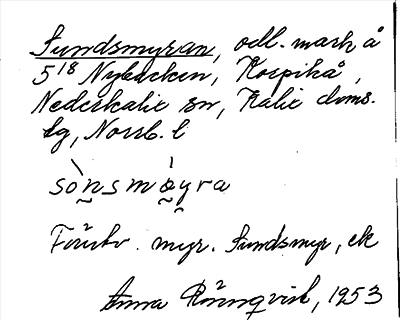 Sundsmyran, odl. mark å
5¹⁸ Nybacken, Korpikå,
Nederkalix sn, Kalix doms.
lg, Norrb. l
sònsmǿyra
myr. Sundsmyr, ek
Anna Rönnqvist, 1953